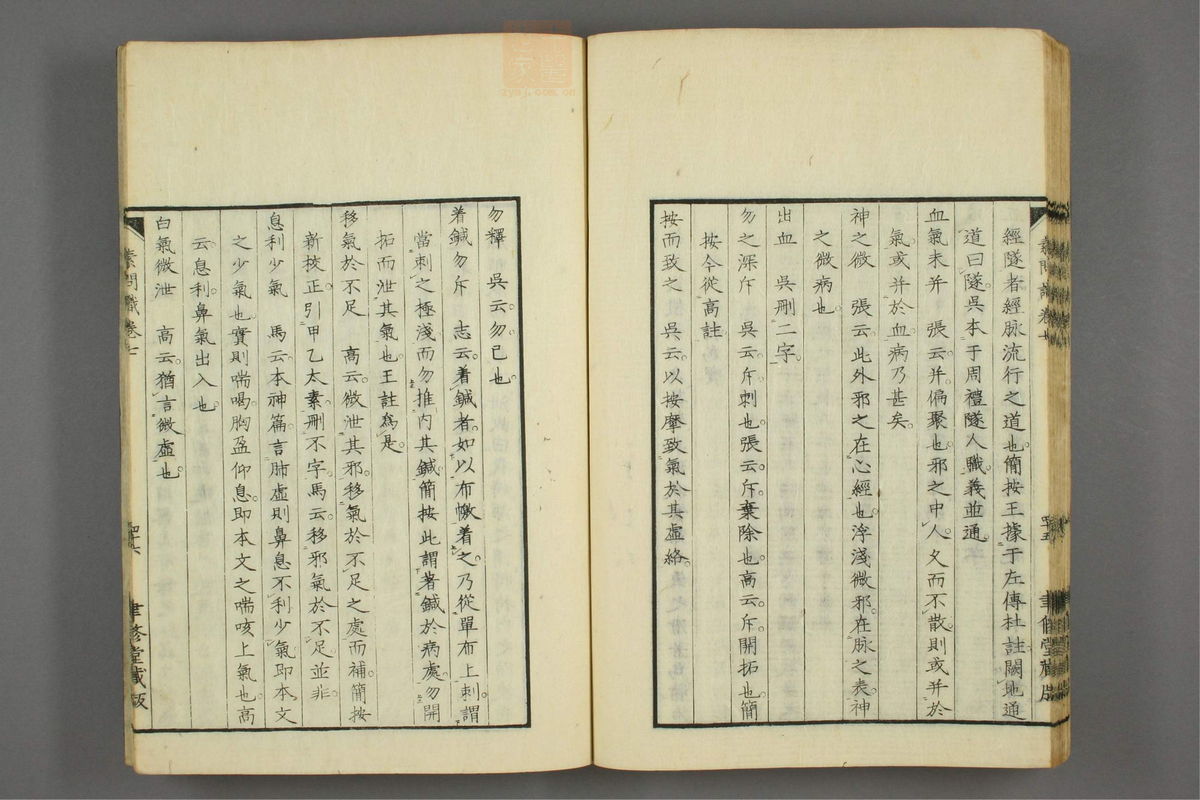 經隧者經脉流行之道也簡按王據于左傳杜註闕地通
道曰隧吳本于周禮隧人職義並通
血氣未并　張云并偏聚也邪之中人久而不散則或并於
氣或并於血病乃甚矣
神之微　張云此外邪之在心經也浮淺微邪在脉之表神
之微病也
出血　吳刪二字
勿之深斥　吳云斥刺也張云斥棄除也高云斥開拓也簡
按今從高註
按而致之　吳云以按摩致氣於其虛絡
素問識卷七
四十五
聿修堂藏版
勿釋　吳云勿已也
着鍼勿斥　志云着鍼者如以布幓着之乃從單布上刺謂
當刺之極淺而勿推内其鍼簡按此謂著鍼於病處勿開
拓而泄其氣也王註爲是
移氣於不足　高云微泄其邪移氣於不足之處而補簡按
新校正引甲乙太素刪不字馬云移邪氣於不足並非
息利少氣　馬云本神篇言肺虛則鼻息不利少氣即本文
之少氣也實則喘喝胸盈仰息即本文之喘咳上氣也高
云息利鼻氣出入也
白氣微泄　高云猶言微虛也
素問識卷七
四十六
聿修堂藏版